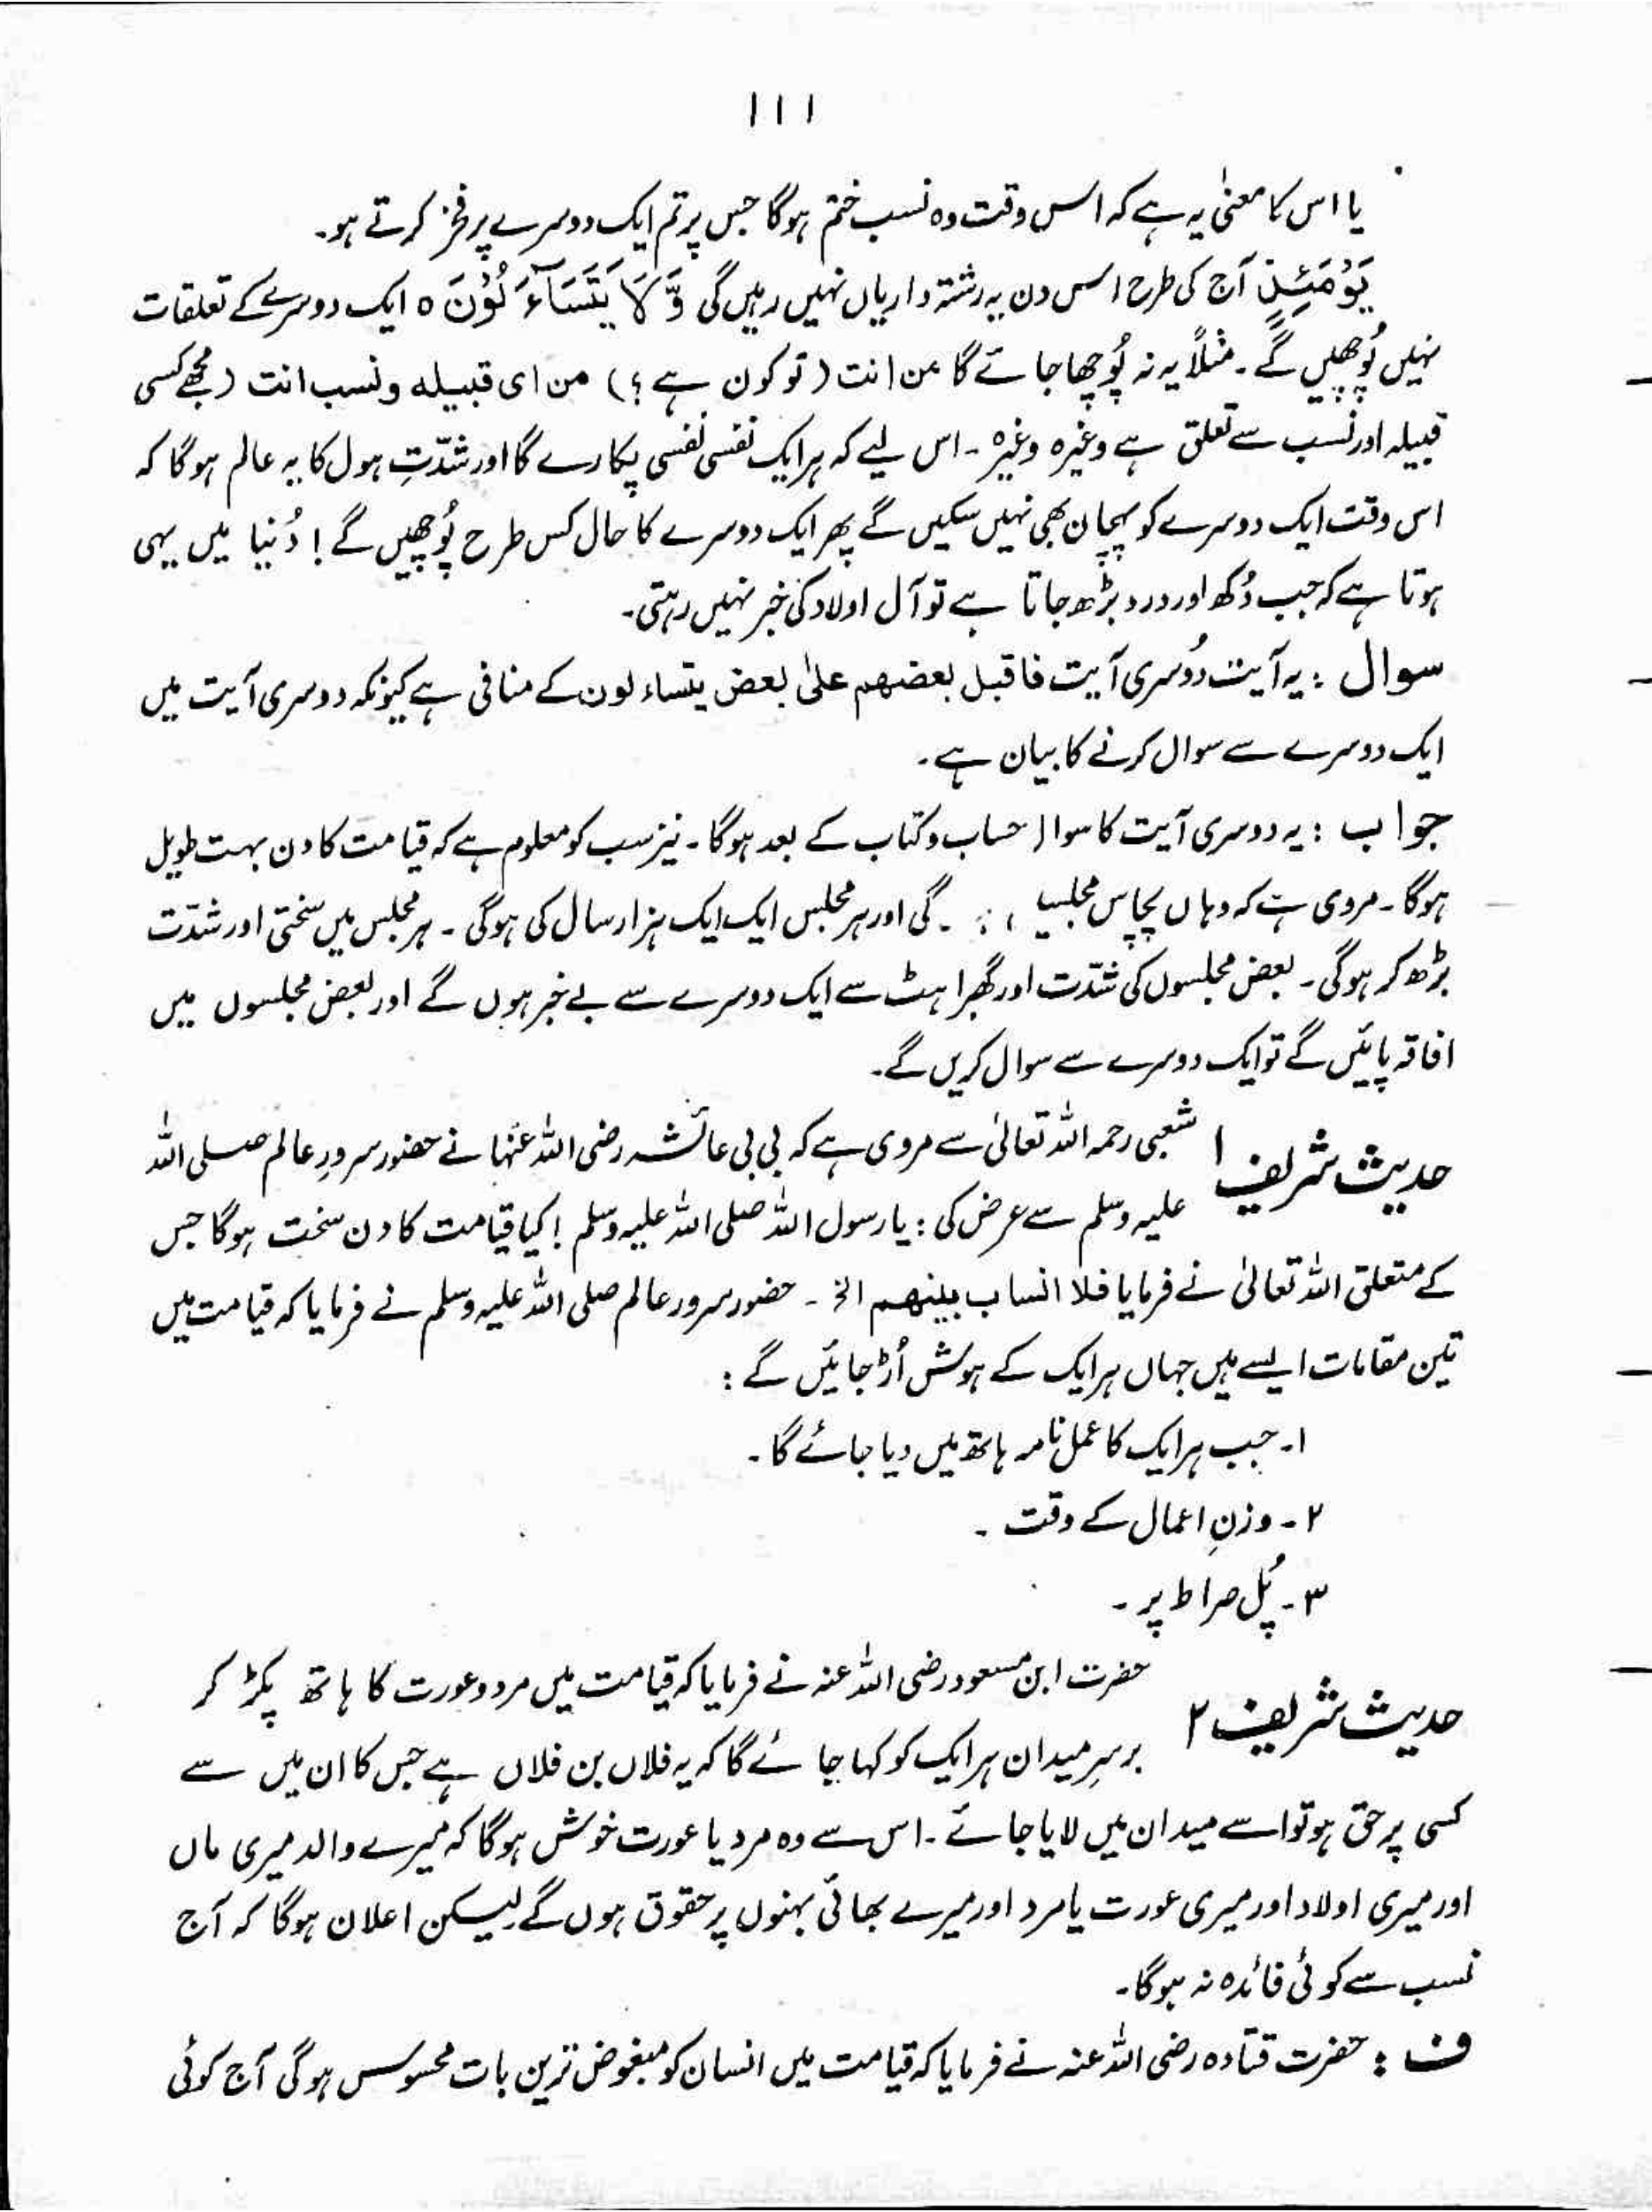 ۱۱۱
یا اس کا معنیٰ یہ ہے کہ اس وقت وہ نسب ختم ہوگا جس پر تم ایک دوسرے پر فخر کرتے ہو۔
يَوْمَئِذٍ آج کی طرح اس دن یہ رشتہ داریاں نہیں رہیں گی وَّلَا يَتَسَآءَلُوْنَ ○ ایک دوسرے کے تعلقات
نہیں پُوچھیں گے۔ مثلاً یہ نہ پُوچھا جائے گا من انت (تو کون ہے؟) من ای قبیلہ ونسب انت (مجھے کسی
قبیلہ اور نسب سے تعلق ہے وغیرہ وغیرہ۔ اس لیے کہ ہر ایک نفسی نفسی پکارے گا اور شدّتِ ہول کا یہ عالم ہوگا کہ
اس وقت ایک دوسرے کو پہچان بھی نہیں سکیں گے پھر ایک دوسرے کا حال کس طرح پُوچھیں گے! دُنیا میں یہی
ہوتا ہے کہ جب دُکھ اور درد بڑھ جاتا ہے تو آل اولاد کی خبر نہیں رہتی۔
سوال : یہ آیت دُوسری آیت فاقبل بعضھم علیٰ بعض یتساءلون کے منافی ہے کیونکہ دوسری آیت میں
ایک دوسرے سے سوال کرنے کا بیان ہے۔
جواب : یہ دوسری آیت کا سوال حساب و کتاب کے بعد ہوگا۔ نیز سب کو معلوم ہے کہ قیامت کا دن بہت طویل
ہوگا۔ مروی ہے کہ وہاں پچاس گی اور ہر مجلس ایک ایک ہزار سال کی ہوگی۔ ہر مجلس میں سختی اور شدّت
بڑھ کر ہوگی۔ بعض مجلسوں کی شدّت اور گھبراہٹ سے ایک دوسرے سے بے خبر ہوں گے اور بعض مجلسوں میں
افاقہ پائیں گے تو ایک دوسرے سے سوال کریں گے۔
حدیث شریف ۱ شعبی رحمہ اللہ تعالیٰ سے مروی ہے کہ بی بی عائشہ رضی اللہ عنہا نے حضور سرورِ عالم صلی اللہ
علیہ وسلم سے عرض کی : یا رسول اللہ صلی اللہ علیہ وسلم! کیا قیامت کا دن سخت ہوگا جس
کے متعلق اللہ تعالیٰ نے فرمایا فلا انساب بینھم الخ۔ حضور سرور عالم صلی اللہ علیہ وسلم نے فرمایا کہ قیامت میں
تین مقامات ایسے ہیں جہاں ہر ایک کے ہوش اُڑ جائیں گے :
۱۔ جب ہر ایک کا عمل نامہ ہاتھ میں دیا جائے گا۔
۲۔ وزنِ اعمال کے وقت ۔
۳۔ پُل صراط پر ۔
حدیث شریف ۲ حضرت ابن مسعود رضی اللہ عنہ نے فرمایا کہ قیامت میں مرد و عورت کا ہاتھ پکڑ کر
برسرِ میدان ہر ایک کو کہا جائے گا کہ یہ فلاں بن فلاں ہے جس کا ان میں سے
کسی پر حق ہو تو اسے میدان میں لایا جائے۔ اس سے وہ مرد یا عورت خوش ہوگا کہ میرے والد میری ماں
اور میری اولاد اور میری عورت یا مرد اور میرے بھائی بہنوں پر حقوق ہوں گے لیکن اعلان ہوگا کہ آج
نسب سے کوئی فائدہ نہ ہوگا۔
ف : حضرت قتادہ رضی اللہ عنہ نے فرمایا کہ قیامت میں انسان کو مبغوض ترین بات محسوس ہوگی آج کوئی